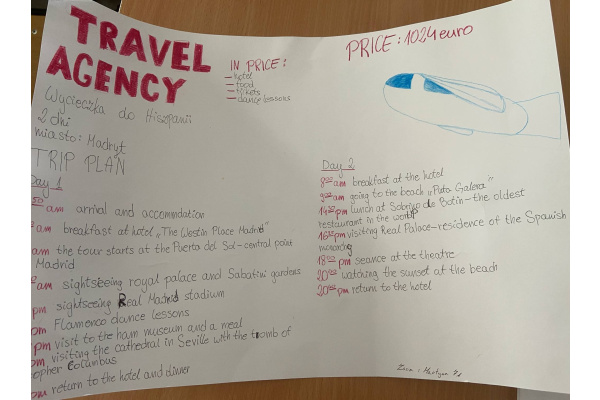 TRAVEL
AGENCY
Wycieczka do Hiszpanii
2 dni
miasto: Madryt
TRIP PLAN
IN PRICE:
- hotel
- food
- tikets
- dance lessons
PRICE: 1024 euro
Day 1
am arrival and accomodation
am breakfast at hotel „The Westin Place Madrid"
am the tour starts at the Puerta del Sol-central point
Madrid
am sightseeing royal palace and Sabatini gardens
pm sightseeing Real Madrid stadium
pm Flamenco dance lessons
pm visit to the ham museum and a meal
pm visiting the cathedral in Seville with the tomb of
opher Columbus
pm return to the hotel and dinner
Day 2
8 am breakfast at the hotel
am going to the beach „Pato Galera"
14 pm lunch at Sobrino de Botin-the oldest
restaurant in the world
16 pm visiting Real Palace-residence of the Spanish
monarchy
18 pm seance at the theatre
20 watching the sunset at the beach
20 pm return to the hotel